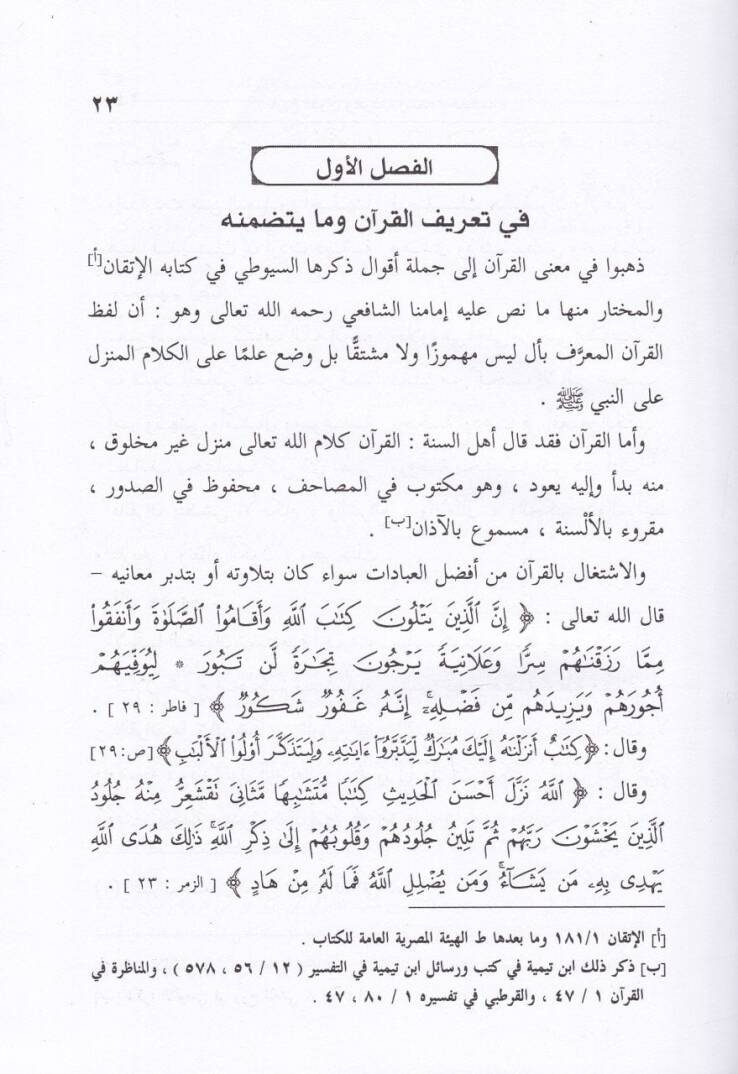 ٢٣
الفصل الأول
في تعريف القرآن وما يتضمنه
ذهبوا في معنى القرآن إلى جملة أقوال ذكرها السيوطي في كتابه الإتقان[أ]
والمختار منها ما نص عليه إمامنا الشافعي رحمه الله تعالى وهو : أن لفظ
القرآن المعرَّف بأل ليس مهموزًا ولا مشتقًّا بل وضع علمًا على الكلام المنزل
على النبي ﷺ .
وأما القرآن فقد قال أهل السنة : القرآن كلام الله تعالى منزل غير مخلوق ،
منه بدأ وإليه يعود ، وهو مكتوب في المصاحف ، محفوظ في الصدور ،
مقروء بالألْسنة ، مسموع بالآذان[ب] .
والاشتغال بالقرآن من أفضل العبادات سواء كان بتلاوته أو بتدبر معانيه –
قال الله تعالى : ﴿ إِنَّ الَّذِينَ يَتْلُونَ كِتَٰبَ اللَّهِ وَأَقَامُوا۟ الصَّلَوٰةَ وَأَنفَقُوا۟
مِمَّا رَزَقْنَٰهُمْ سِرًّا وَعَلَانِيَةً يَرْجُونَ تِجَٰرَةً لَّن تَبُورَ * لِيُوَفِّيَهُمْ
أُجُورَهُمْ وَيَزِيدَهُم مِّن فَضْلِهِۦٓ إِنَّهُۥ غَفُورٌ شَكُورٌ ﴾ [ فاطر : ٢٩ ] .
وقال: ﴿كِتَٰبٌ أَنزَلْنَٰهُ إِلَيْكَ مُبَٰرَكٌ لِّيَدَّبَّرُوٓا۟ ءَايَٰتِهِۦ وَلِيَتَذَكَّرَ أُو۟لُوا۟ الْأَلْبَٰبِ﴾[ص:٢٩]
وقال : ﴿ اللَّهُ نَزَّلَ أَحْسَنَ الْحَدِيثِ كِتَٰبًا مُّتَشَٰبِهًا مَّثَانِىَ تَقْشَعِرُّ مِنْهُ جُلُودُ
الَّذِينَ يَخْشَوْنَ رَبَّهُمْ ثُمَّ تَلِينُ جُلُودُهُمْ وَقُلُوبُهُمْ إِلَىٰ ذِكْرِ اللَّهِ ذَٰلِكَ هُدَى اللَّهِ
يَهْدِى بِهِۦ مَن يَشَآءُ وَمَن يُضْلِلِ اللَّهُ فَمَا لَهُۥ مِنْ هَادٍ ﴾ [ الزمر : ٢٣ ] .
[أ] الإتقان ١٨١/١ وما بعدها ط الهيئة المصرية العامة للكتاب .
[ب] ذكر ذلك ابن تيمية في كتب ورسائل ابن تيمية في التفسير ( ١٢ / ٥٦ ، ٥٧٨ ) ، والمناظرة في
القرآن ١ / ٤٧ ، والقرطبي في تفسيره ١ / ٨٠ ، ٤٧ .